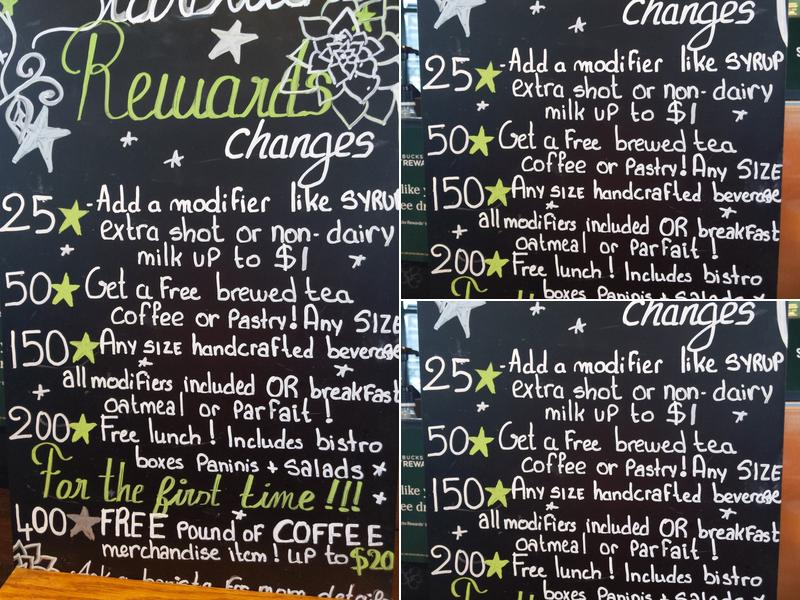 Rewards
changes
25 - Add a modifier like SYRUP
extra shot or non-dairy
milk up to $1
50 Get a Free brewed tea
coffee or Pastry! Any SIZE
150 Any SIZE handcrafted beverage
+ all modifiers included OR breakfast
oatmeal or Parfait!
200 Free lunch! Includes bistro
boxes Paninis + Salads
For the first time!!!
400 FREE Pound of COFFEE
merchandise item! up to $20
changes
25 - Add a modifier like SYRUP
extra shot or non-dairy
milk up to $1
50 Get a Free brewed tea
coffee or Pastry! Any SIZE
150 Any SIZE handcrafted beverage
+ all modifiers included OR breakfast
oatmeal or Parfait!
200 Free lunch! Includes bistro
boxes Paninis + Salads
changes
25 - Add a modifier like SYRUP
extra shot or non-dairy
milk up to $1
50 Get a Free brewed tea
coffee or Pastry! Any SIZE
150 Any SIZE handcrafted beverage
+ all modifiers included OR breakfast
oatmeal or Parfait!
200 Free lunch! Includes bistro
boxes Paninis + Salads